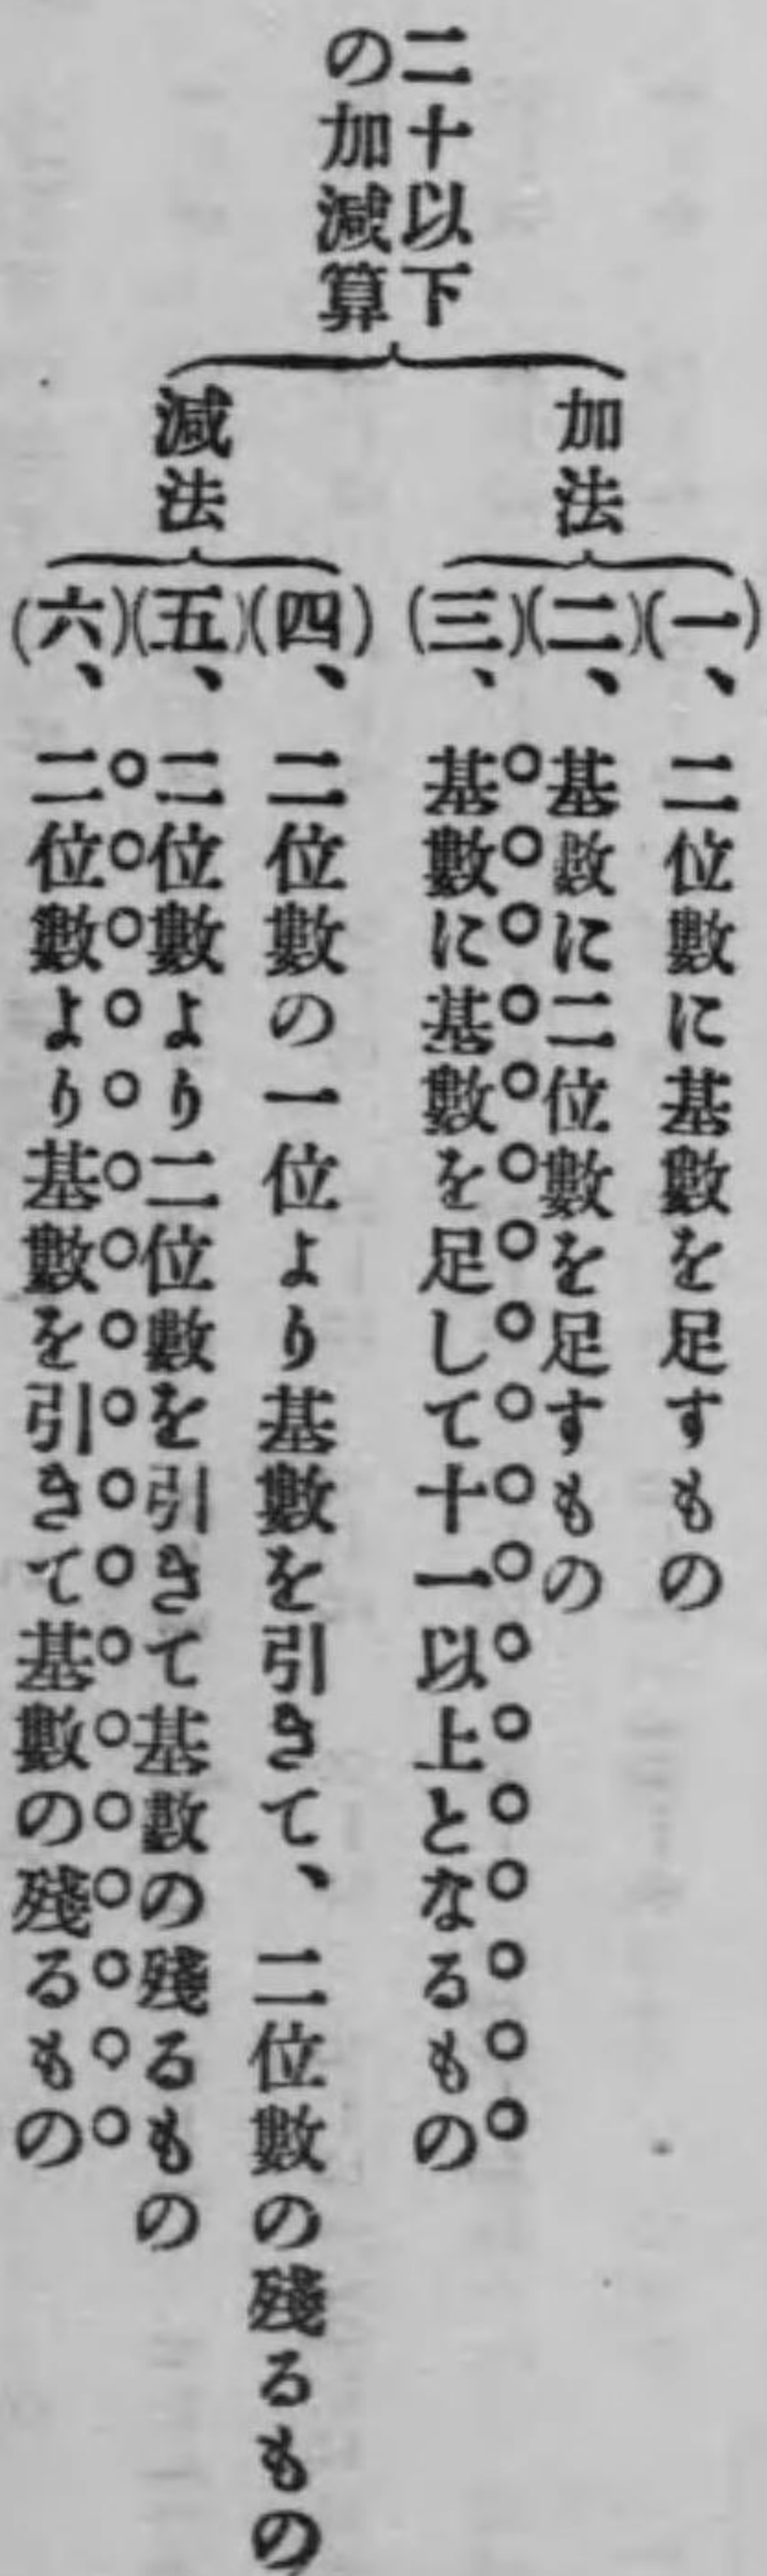 二十以下
の加減算
加法
(一)、二位數に基數を足すもの
(二)、基數に二位數を足すもの
(三)、基數に基數を足して十一以上となるもの
減法
(四)、二位數の一位より基數を引きて、二位數の殘るもの
(五)、二位數より二位數を引きて基數の殘るもの
(六)、二位數より基數を引きて基數の殘るもの